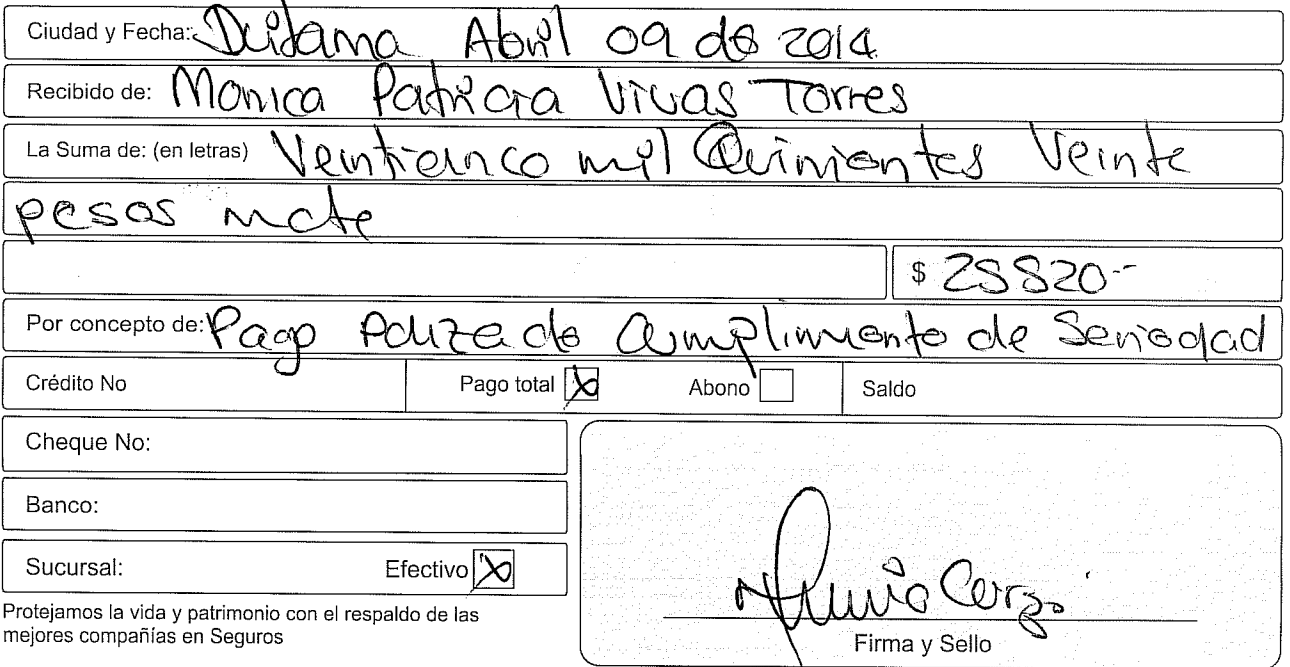 Ciudad y Fecha: Duitama Abril 09 de 2014
Recibido de: Monica Patricia Vivas Torres
La Suma de: (en letras) Veinticinco mil Quinientos Veinte
pesos mcte
$ 25520--
Por concepto de: Pago Poliza de Cumplimiento de Seriedad
Crédito No Pago total X Abono Saldo
Cheque No:
Banco:
Sucursal: Efectivo X
Protejamos la vida y patrimonio con el respaldo de las
mejores compañías en Seguros
Firma y Sello